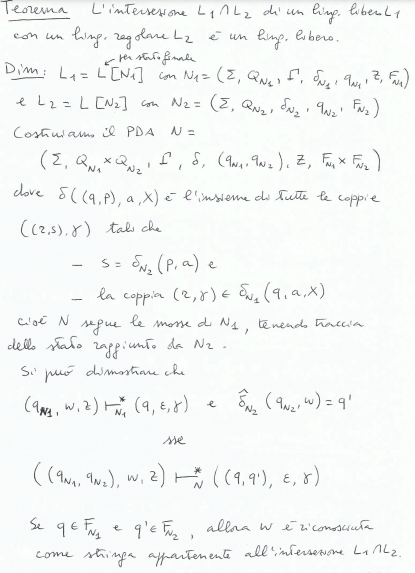 Teorema L'intersezione L₁∩L₂ di un ling. libero L₁
con un ling. regolare L₂ è un ling. libero.
per stato finale
Dim: L₁ = L[N₁] con N₁ = (Σ, Q_N₁, Γ, δ_N₁, q_N₁, Z, F_N₁)
e L₂ = L[N₂] con N₂ = (Σ, Q_N₂, δ_N₂, q_N₂, F_N₂)
Costruiamo il PDA N =
(Σ, Q_N₁ × Q_N₂, Γ, δ, (q_N₁, q_N₂), Z, F_N₁ × F_N₂)
dove δ((q,p), a, X) è l'insieme di tutte le coppie
((r,s), γ) tali che
– s = δ_N₂(p,a) e
– la coppia (r,γ) ∈ δ_N₁(q,a,X)
cioè N segue le mosse di N₁, tenendo traccia
dello stato raggiunto da N₂.
Si può dimostrare che
(q_N₁, w, z) ⊢*_N₁ (q, ε, γ) e δ̂_N₂(q_N₂, w) = q'
sse
((q_N₁, q_N₂), w, z) ⊢*_N ((q,q'), ε, γ)
Se q ∈ F_N₁ e q' ∈ F_N₂, allora w è riconosciuta
come stringa appartenente all'intersezione L₁∩L₂.